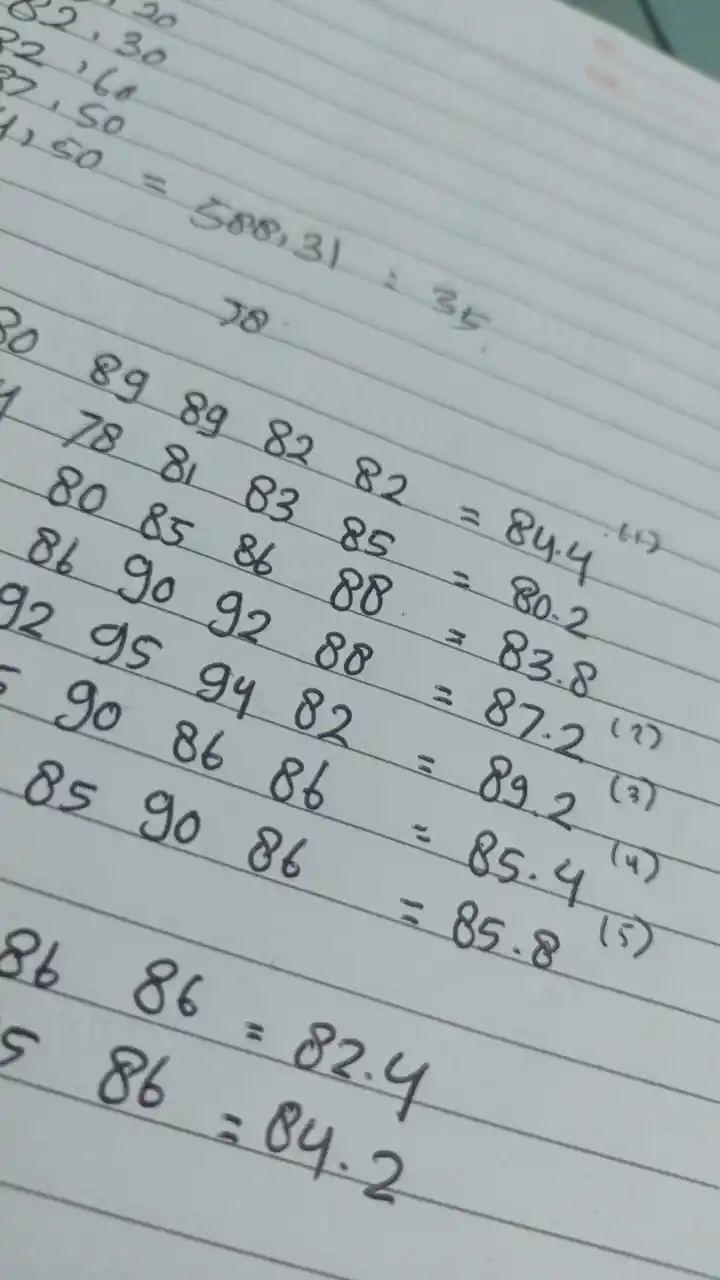 , 20
82, 30
82, 60
87, 50
4, 50 = 588,31 : 35
78
80 89 89 82 82 = 84.4 (1)
78 81 83 85 = 80.2
80 85 86 88 = 83.8
86 90 92 88 = 87.2 (2)
92 95 94 82 = 89.2 (3)
5 90 86 86 = 85.4 (4)
85 90 86 = 85.8 (5)
86 86 = 82.4
5 86 = 84.2